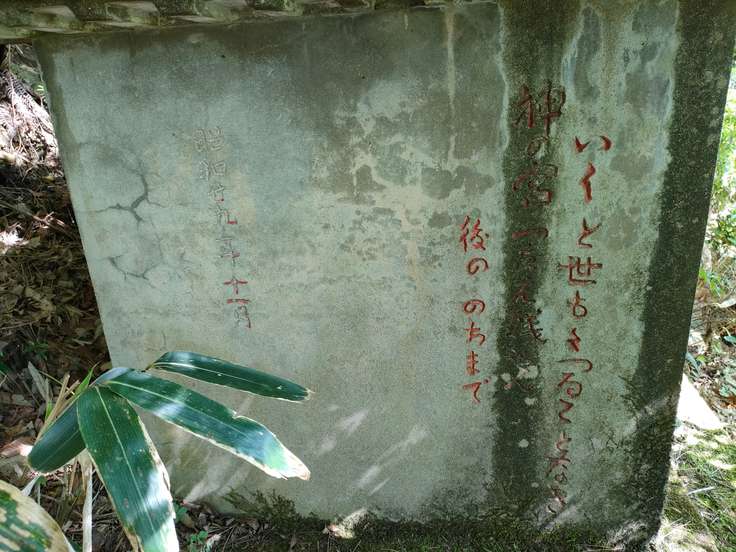 いく と世もくつることなき
神の宮つたへ残
後の のちまで
昭和廿九年十一月